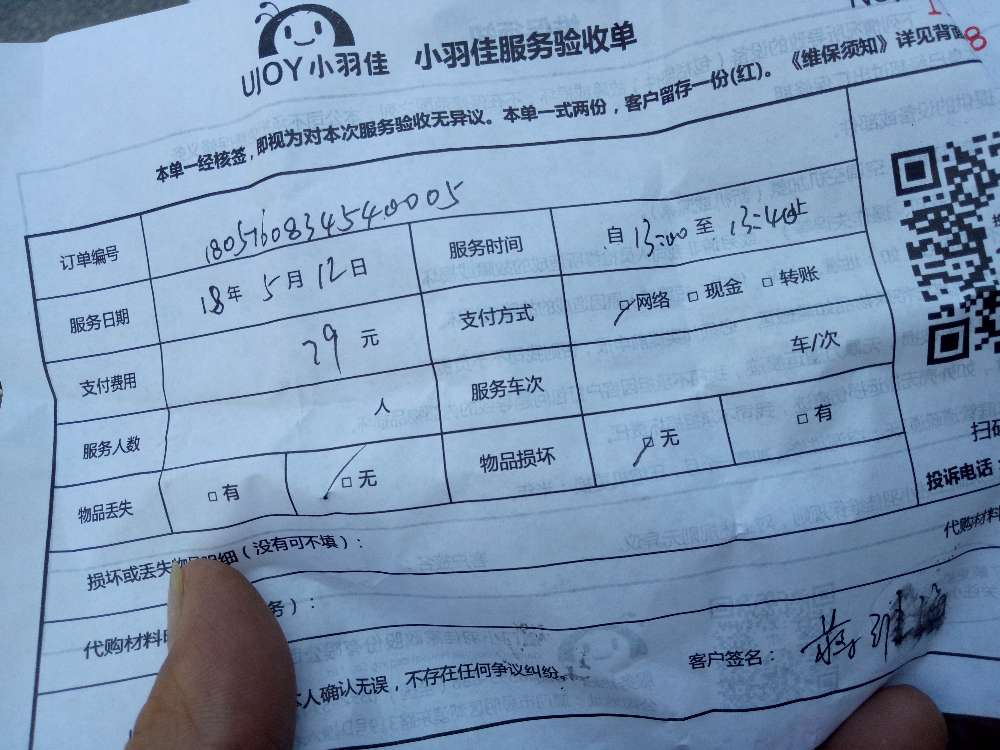 UJOY小羽佳 小羽佳服务验收单
本单一经核签,即视为对本次服务验收无异议。本单一式两份,客户留存一份(红)。《维保须知》详见背面
订单编号 180516083454540005 服务时间 自 13:00 至
服务日期 18 年 5 月 12 日 支付方式 □网络 □现金 □转账
支付费用 29 元 服务车次 车/次
服务人数 人
物品丢失 □有 □无 物品损坏 □无 □有
扫码
投诉电话
损坏或丢失 明细(没有可不填):
代购材料
代购材料 务):
本人确认无误,不存在任何争议纠纷。
客户签名: